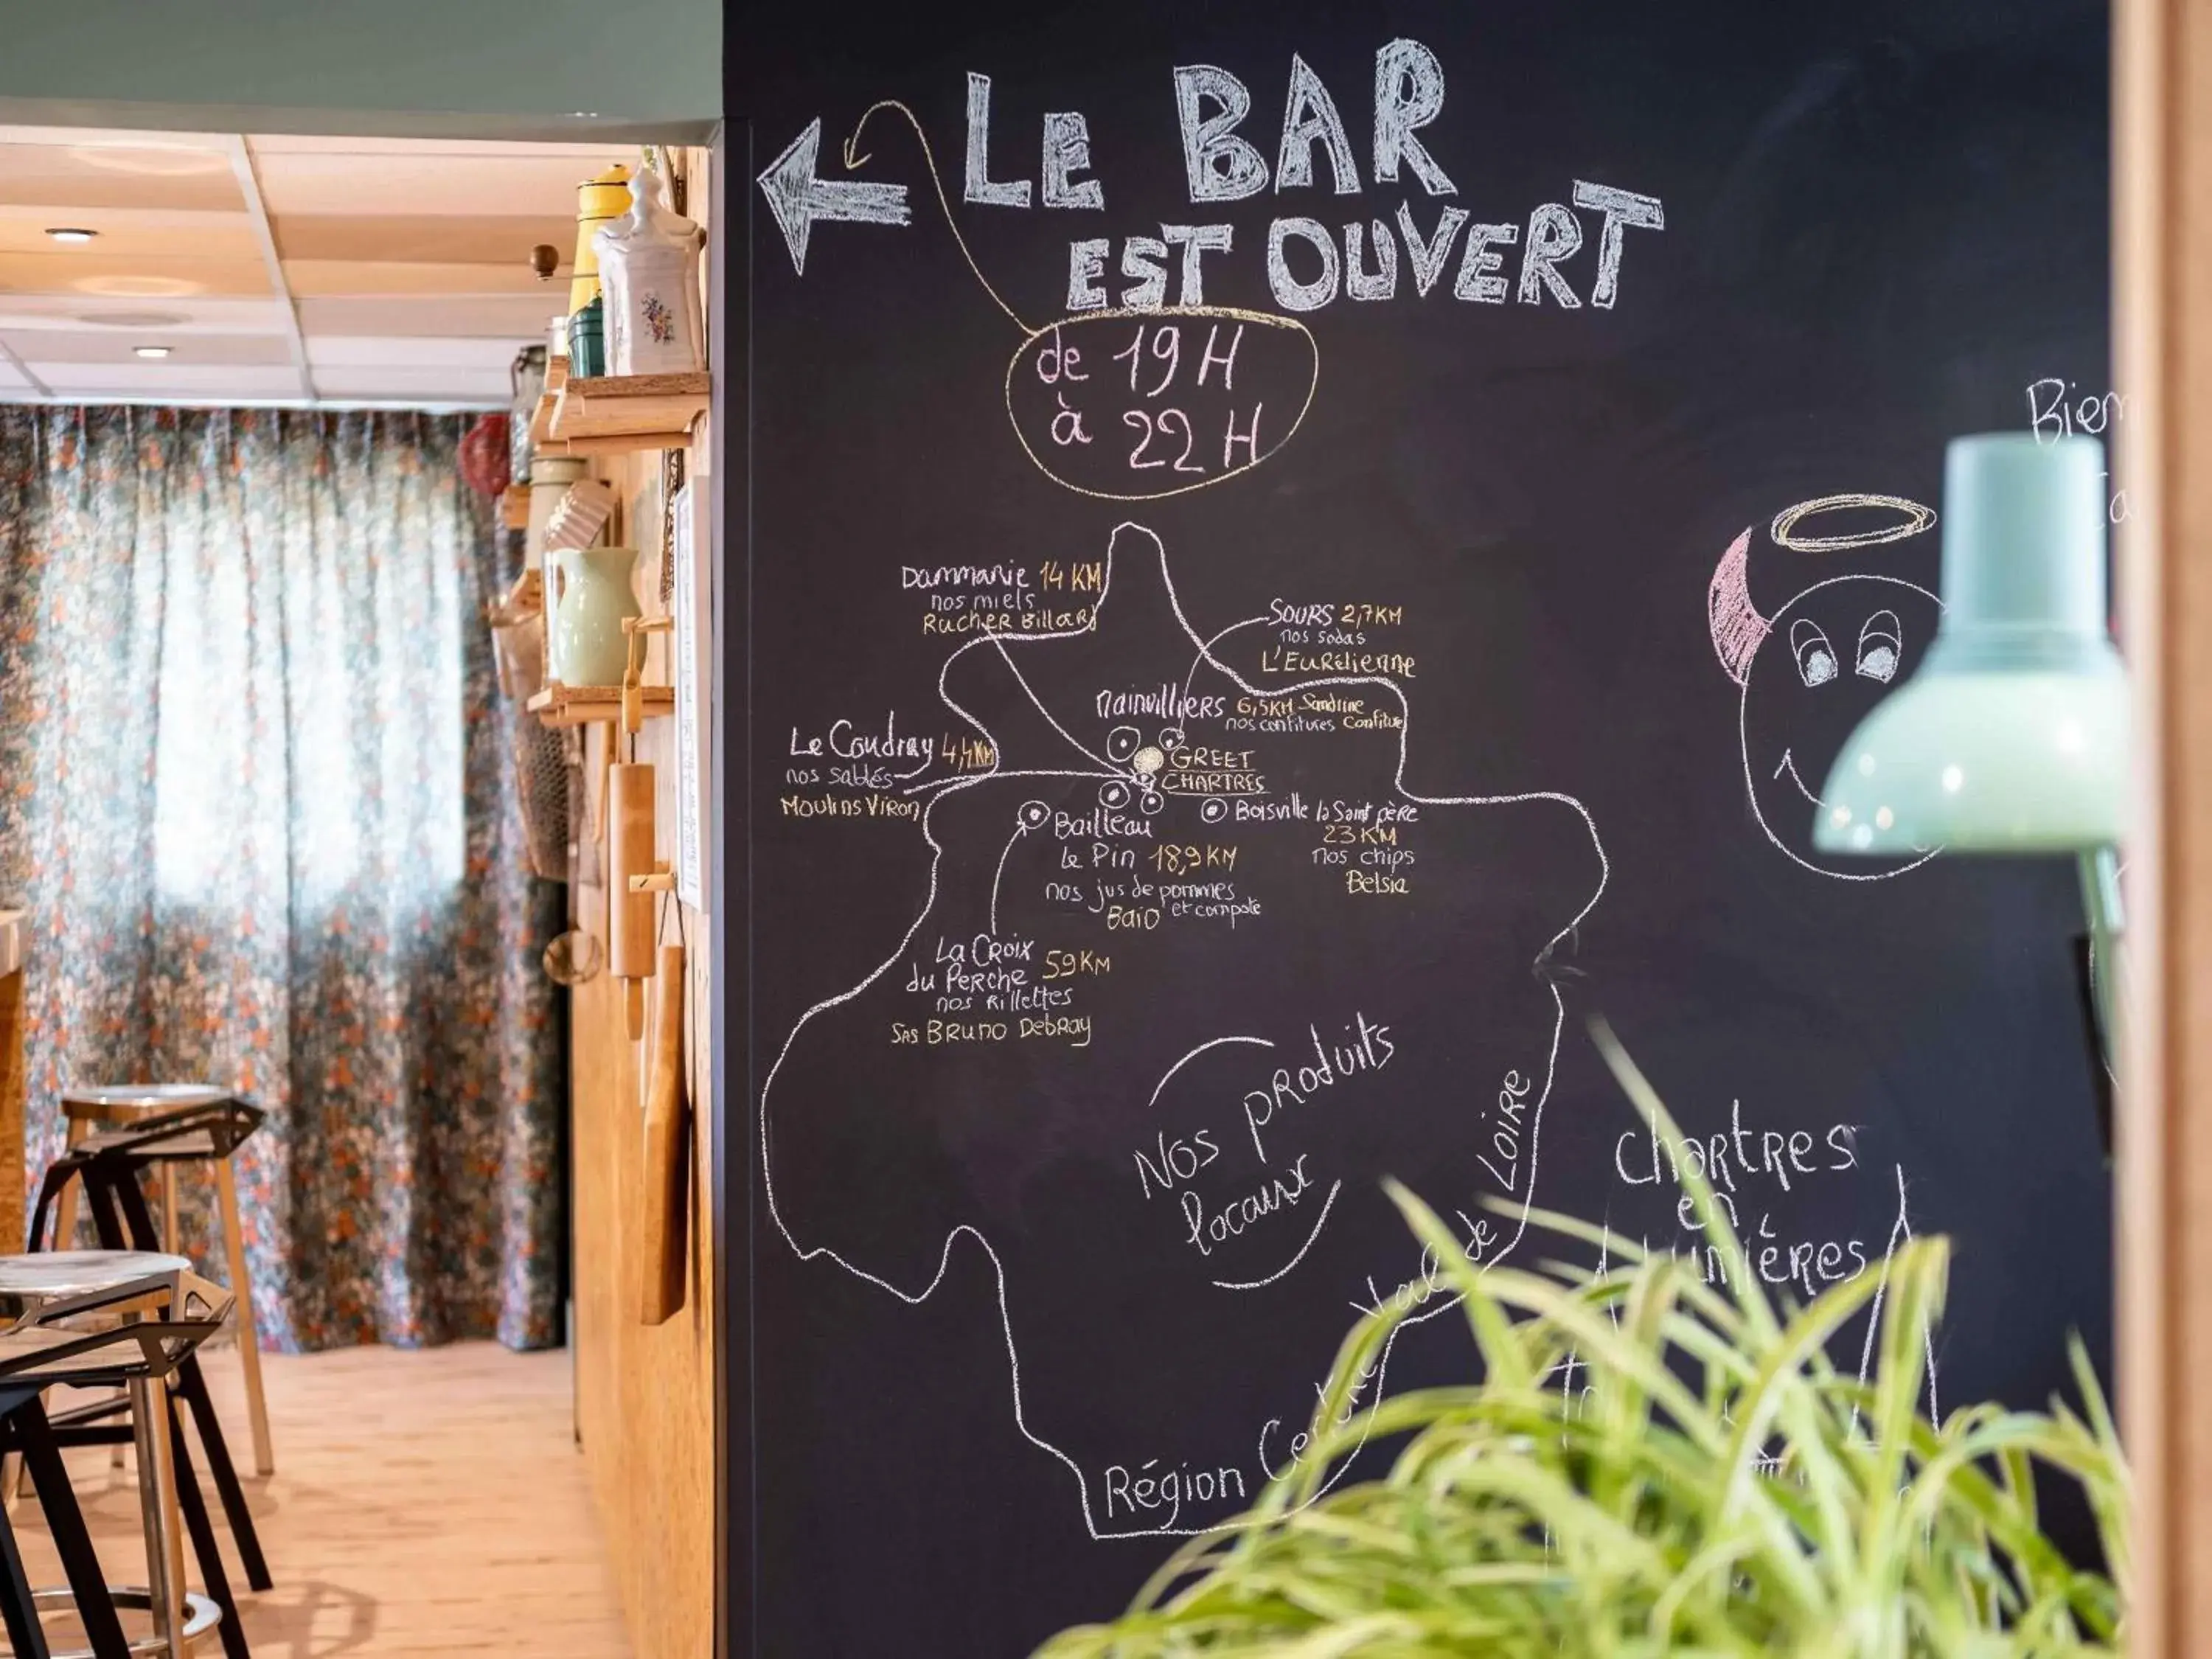 LE BAR
EST OUVERT
de 19H
à 22H
Bien
Dammarie 14 KM
nos miels
RucHER Billard
SOURS 2,7KM
nos sodas
L'EuRélienne
Mainvilliers 6,5KM Sandrine
nos confitures Confiture
Le Coudray 4,4KM
nos sablés
Moulins Viron
GREET
CHARTRES
Bailleau
Le Pin 18,9 KM
nos jus de pommes
et compote
Baio
Boisville la Saint père
23 KM
nos chips
Belsia
La Croix
du Perche 59KM
nos Rillettes
SAS BRUNO DebRay
Nos produits
locaux
Région Centre Val de LOIRE
ChaRtRes
en
Lumières